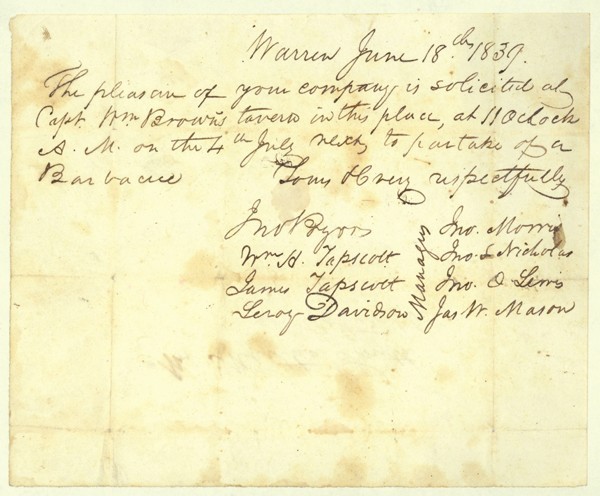 Warren June 18th 1839.
The pleasure of your company is solicited at
Capt. Wm Browns tavern in this place, at 11 Oclock
A. M. on the 4th July next, to partake of a
Barbacue Yours &c very respectfully
Jno Morris
Wm H. Tapscott Jno S Nicholas
James Tapscott Jno. O. Lewis
Leroy Davidson Jas W. Mason
Managers